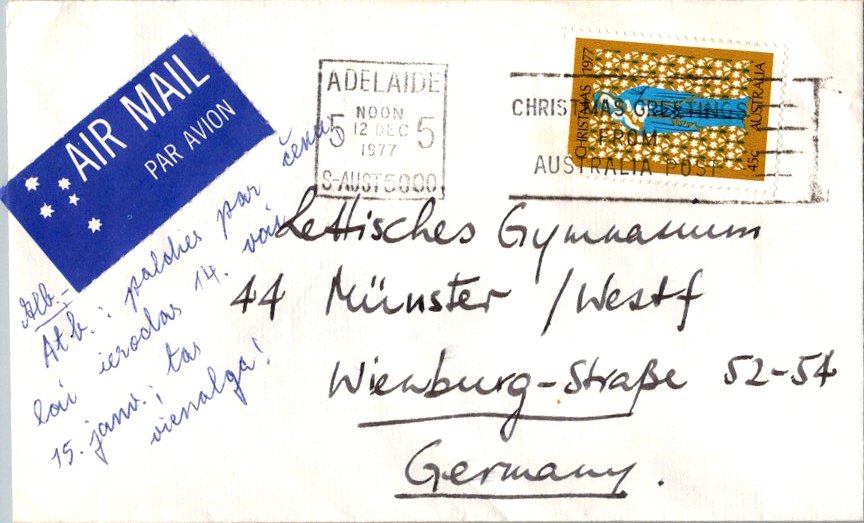 AIR MAIL
PAR AVION
ADELAIDE
NOON
5 12 DEC 5
1977
S-AUST 5000
CHRISTMAS GREETINGS
FROM
AUSTRALIA POST
CHRISTMAS 1977
45c AUSTRALIA
Lettisches Gymnasium
44 Münster /Westf
Wienburg-Straße 52-54
Germany.
Atb.: paldies par
lai ierodas 14. vai
15. janv.; tas
vienalga!